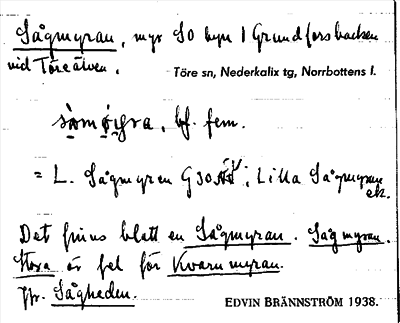 Sågmyran, myr SO byn i Grundforsbacken
vid Töreälven.
Töre sn, Nederkalix tg, Norrbottens l.
bf. fem.
= L. Sågmyren G30 Lilla Sågmyran
ek.
Det finns blott en Sågmyran. Sågmyran.
Stora är fel för Kvarnmyran.
Jfr. Sågheden.
EDVIN BRÄNNSTRÖM 1938.